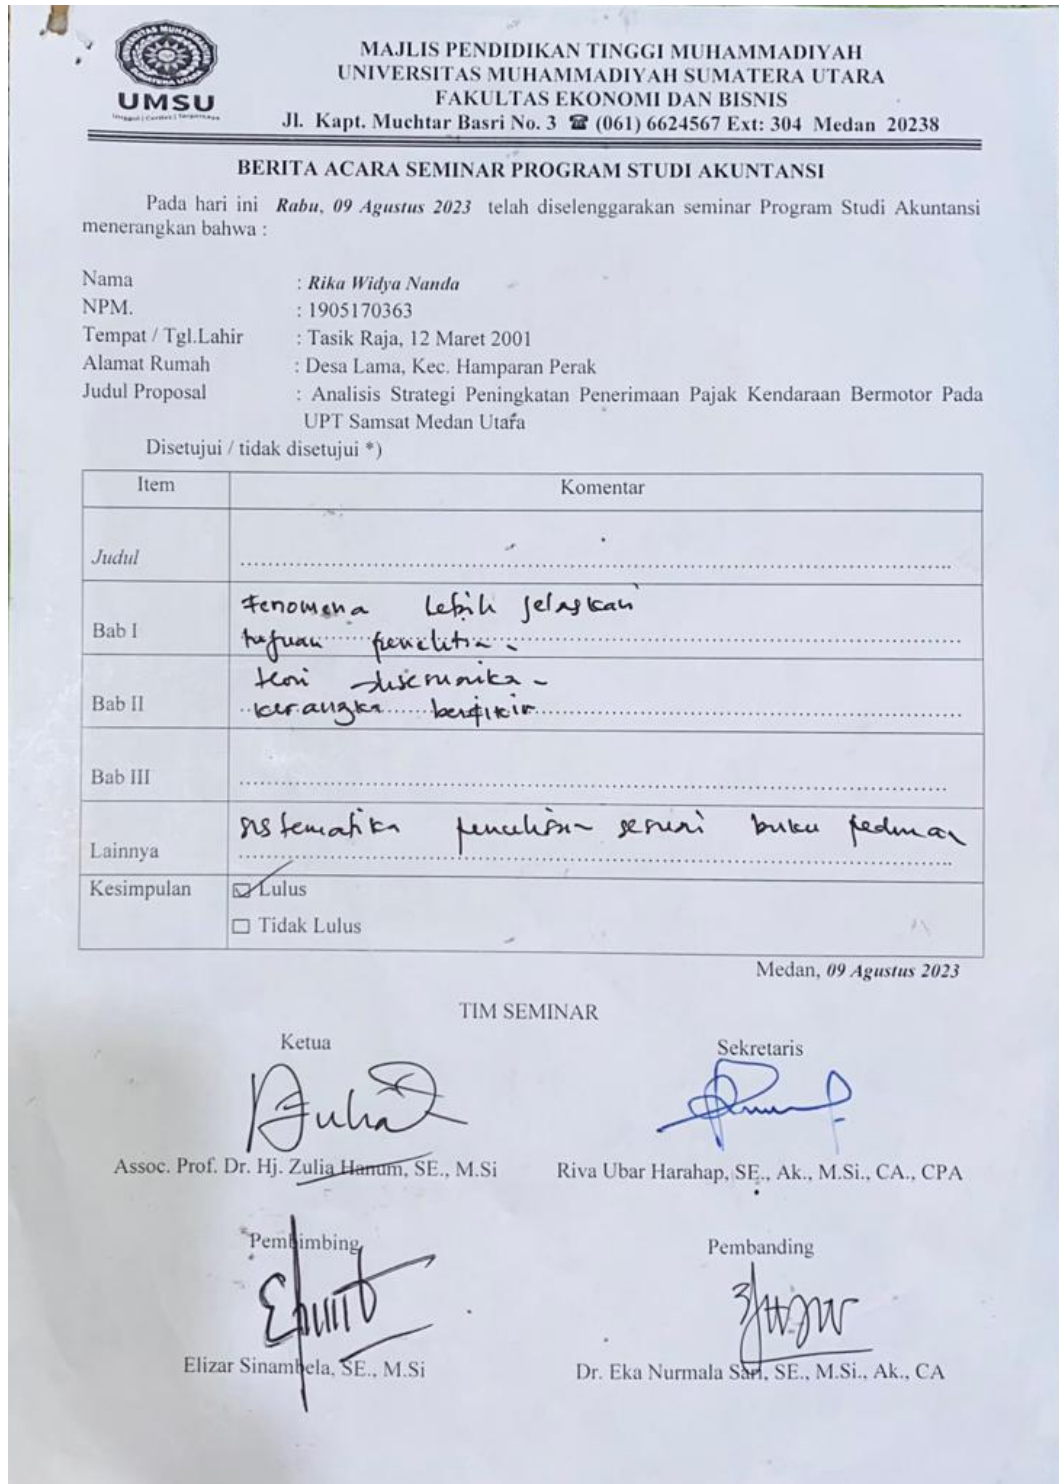 MAJLIS PENDIDIKAN TINGGI MUHAMMADIYAH
UNIVERSITAS MUHAMMADIYAH SUMATERA UTARA
FAKULTAS EKONOMI DAN BISNIS
Jl. Kapt. Muchtar Basri No. 3 ☎ (061) 6624567 Ext: 304 Medan 20238
UMSU
Unggul | Cerdas | Terpercaya
BERITA ACARA SEMINAR PROGRAM STUDI AKUNTANSI
Pada hari ini Rabu, 09 Agustus 2023 telah diselenggarakan seminar Program Studi Akuntansi
menerangkan bahwa :
Nama : Rika Widya Nanda
NPM. : 1905170363
Tempat / Tgl.Lahir : Tasik Raja, 12 Maret 2001
Alamat Rumah : Desa Lama, Kec. Hamparan Perak
Judul Proposal : Analisis Strategi Peningkatan Penerimaan Pajak Kendaraan Bermotor Pada
UPT Samsat Medan Utara
Disetujui / tidak disetujui *)
Item Komentar
Judul
Fenomena lebih jelaskan
Bab I
tujuan penelitian
teori
Bab II
kerangka berfikir
Bab III
sistematika penulisan sesuai buku pedoman
Lainnya
Kesimpulan Lulus
Tidak Lulus
Medan, 09 Agustus 2023
TIM SEMINAR
Ketua Sekretaris
Assoc. Prof. Dr. Hj. Zulia Hanum, SE., M.Si Riva Ubar Harahap, SE., Ak., M.Si., CA., CPA
Pembimbing Pembanding
Elizar Sinambela, SE., M.Si Dr. Eka Nurmala Sari, SE., M.Si., Ak., CA